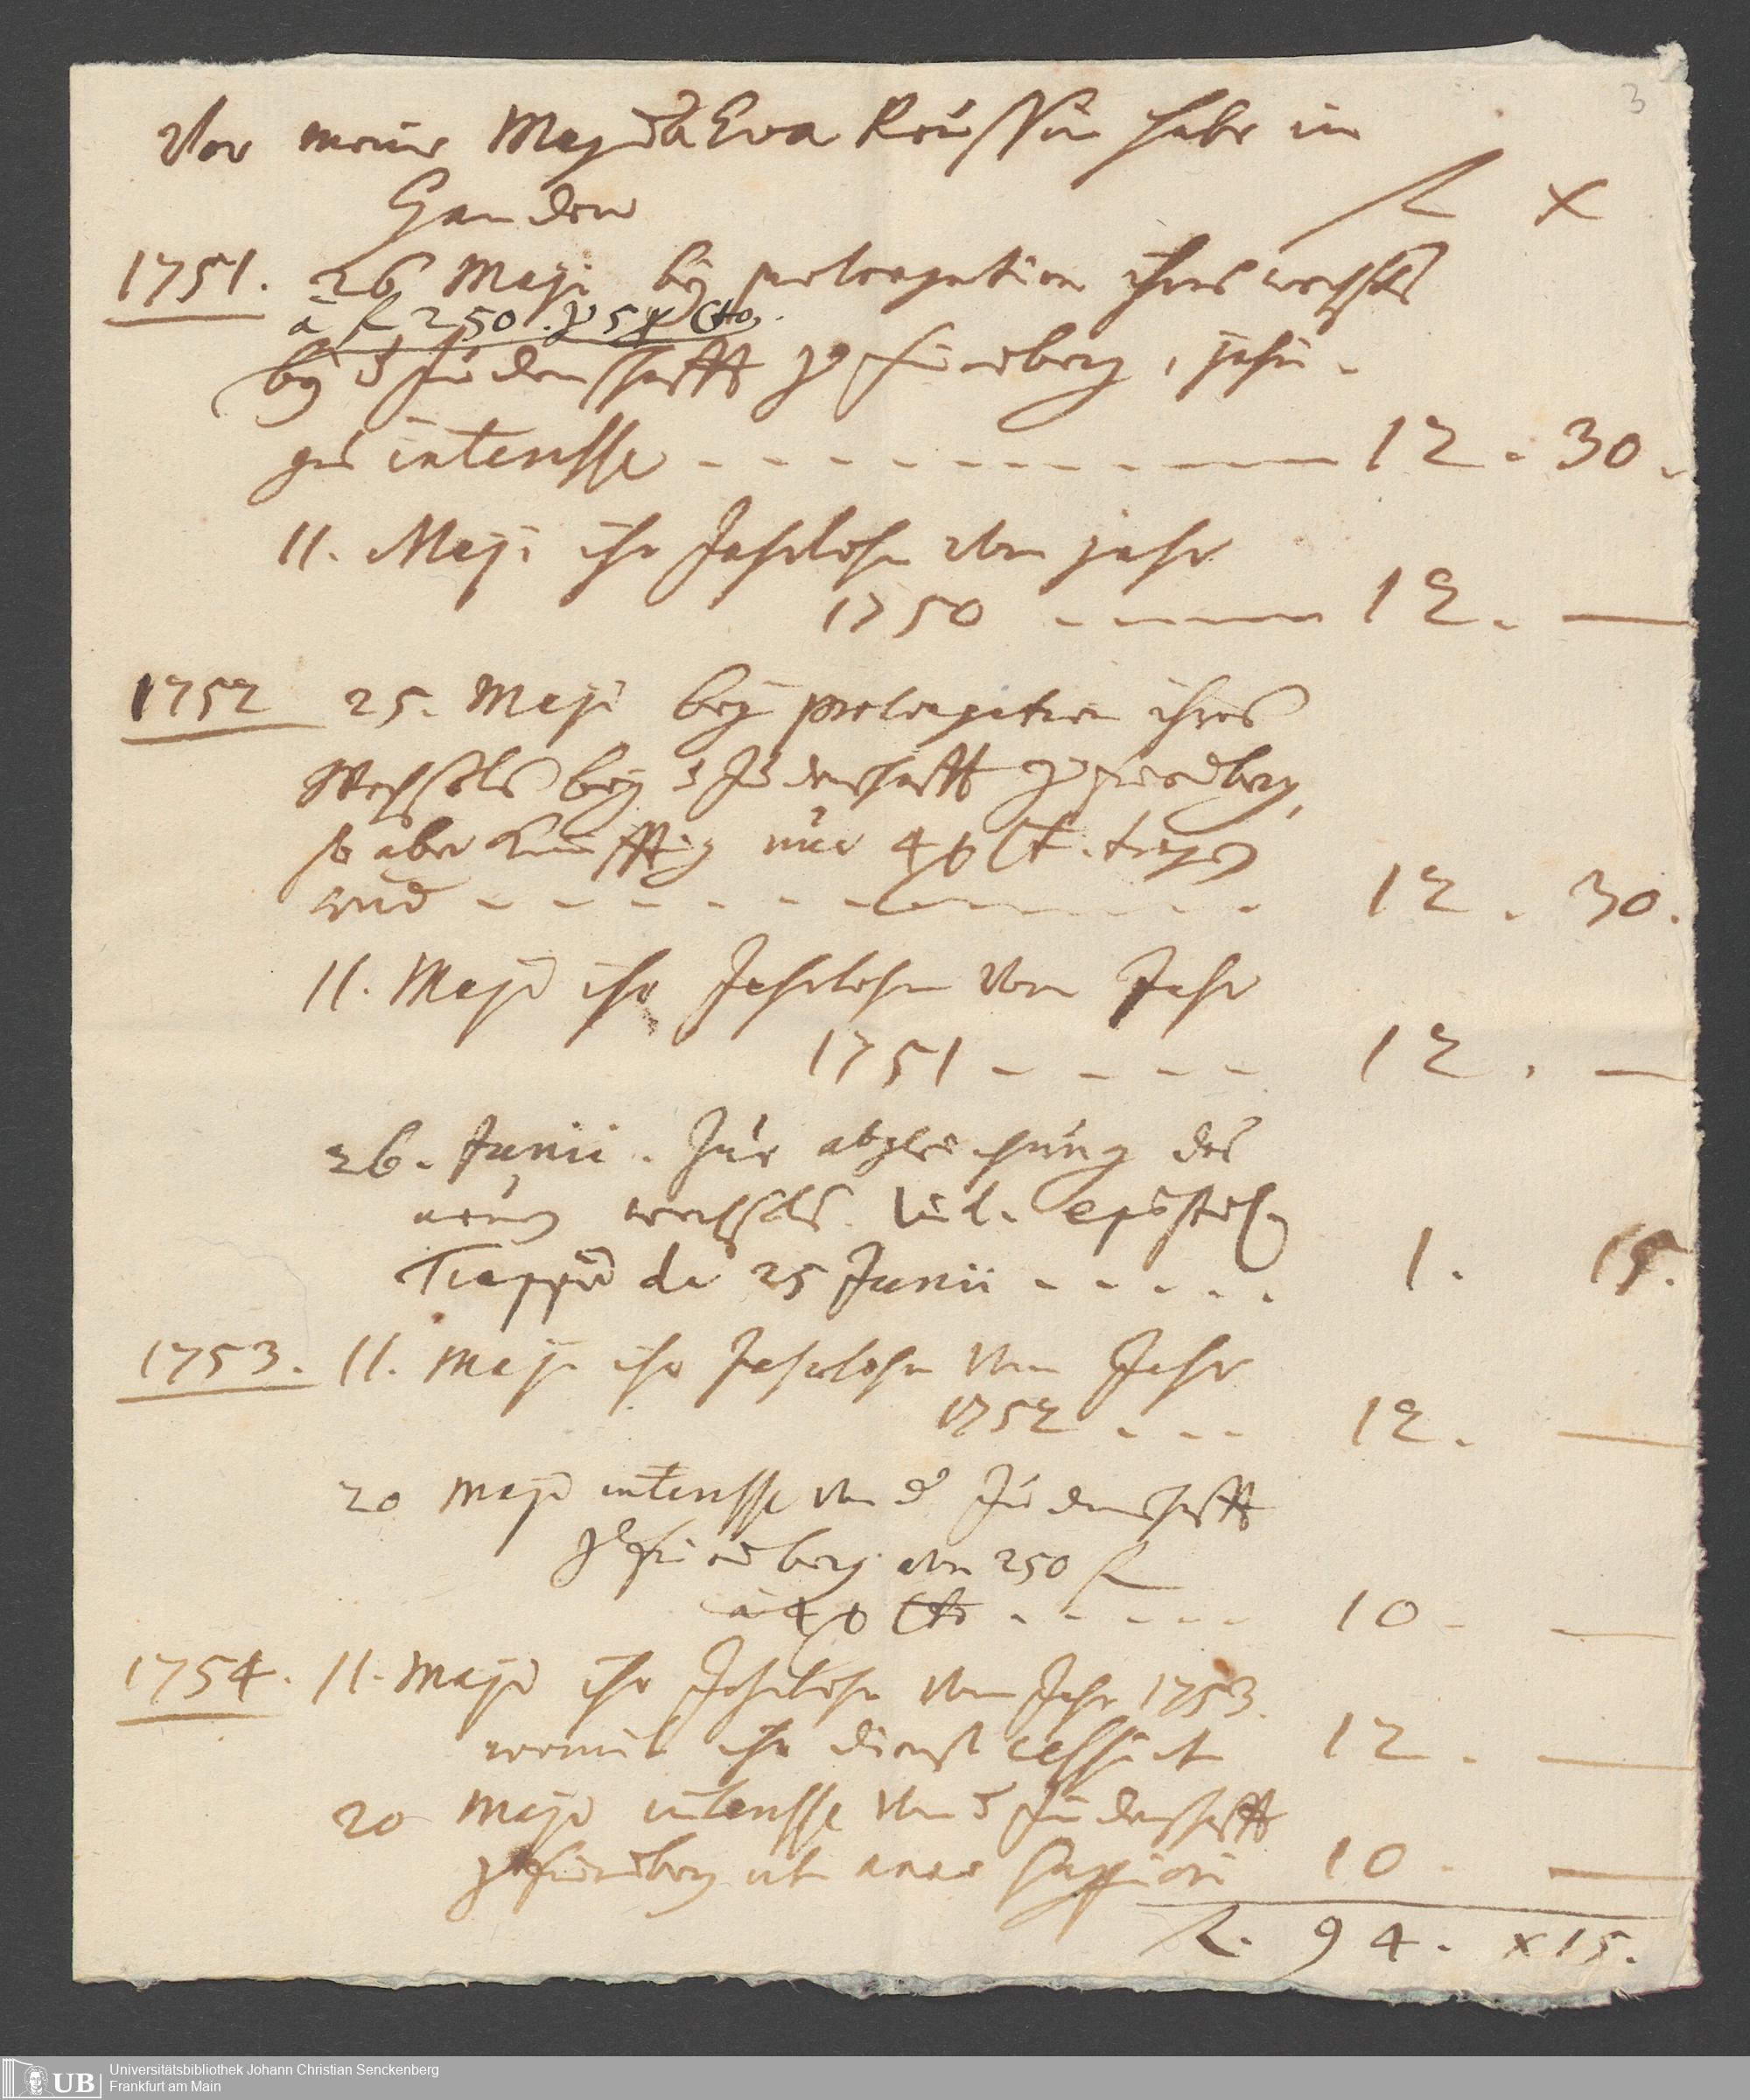 3
Von meiner Magd Eva Reussin habe in
Handen fl x
1751. 26 Maji bey prolongation ihres wechsels
à fl 250. zu 5 p Cto.
bey d. Judenschafft zu Friedberg, jähri-
ges interesse - - - - - - - 12. 30.
11. Maji ihr Jahrlohn vom jahr
1750 - - - - 12. —
1752 25. Maji bey prolongation ihres
Wechsels bey d. Judenschafft zu Friedberg,
so aber künfftig nur 4 p Ct. tragen
wird - - - - - - - - - 12. 30.
11. Maji ihr Jahrlohn vom Jahr
1751 - - - - 12. —
26. Junii. Zur abgleichung des
neuen wechsels. vid. epistol.
de 25 Junii - - - - - 1. 15.
1753. 11. Maji ihr Jahrlohn vom Jahr
1752 - - - 12. —
20 Maji interesse von d. Judenschafft
zu Friedberg von 250 fl
à 4 p Cto - - - - - 10 - —
1754. 11. Maji ihr Jahrlohn vom Jahr 1753.
womit ihr dienst cessirt 12. —
20 Maji interesse von d. Judenschafft
zu Friedberg ut anno 10. —
fl. 94. x 15.
UB Universitätsbibliothek Johann Christian Senckenberg
Frankfurt am Main